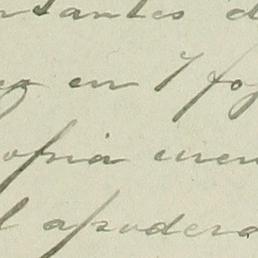 ntantes d
en 7 foj
opia
l apodera